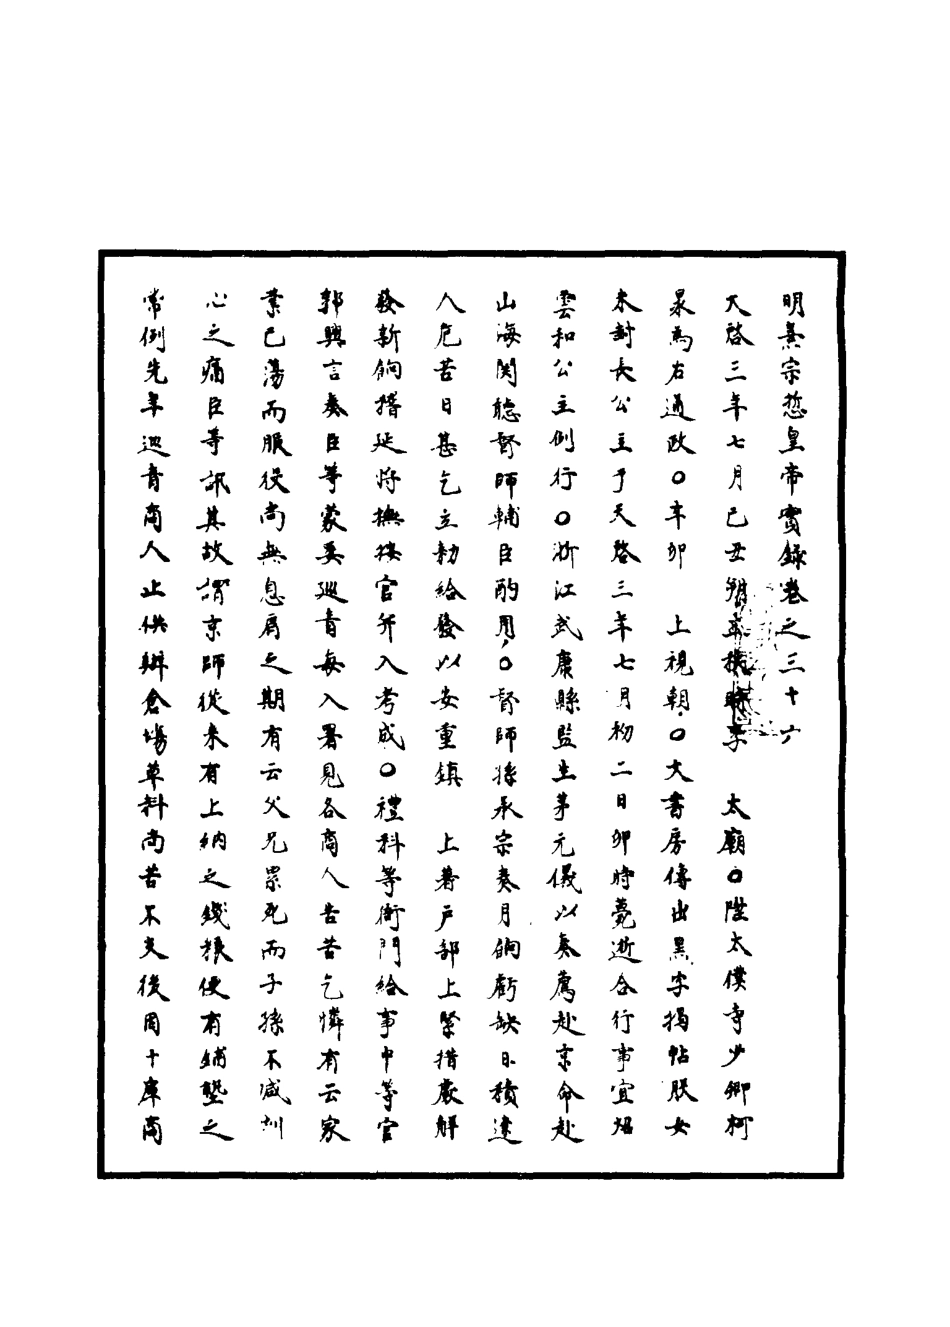 明熹宗悊皇帝實錄卷之三十六
天啓三年七月己丑朔享 太廟○陞太僕寺少卿柯
泉為右通政○辛卯 上視朝○文書房傳出黑字揭帖朕女
未封長公主于天啓三年七月初二日卯時薨逝合行事宜炤
雲和公主例行○浙江武康縣監生茅元儀以奏薦赴京命赴
山海関聽督師輔臣酌用○督師孫承宗奏月餉虧缺日積遼
人危苦日甚乞立勑給發以安重鎮 上著户部上緊措處解
發新餉撍延將撫按官斧入考成○禮科等衙門給事中等官
郭興言奏臣等蒙委巡青每入署見各商人告苦乞憐有云家
業已蕩而服役尚無息肩之期有云父兄累死而子孫不减訓
心之痛臣等訊其故謂京師從来有上納之錢粮便有鋪墊之
常例先年巡青商人止供辦倉塲草料尚苦不支後因十庫商